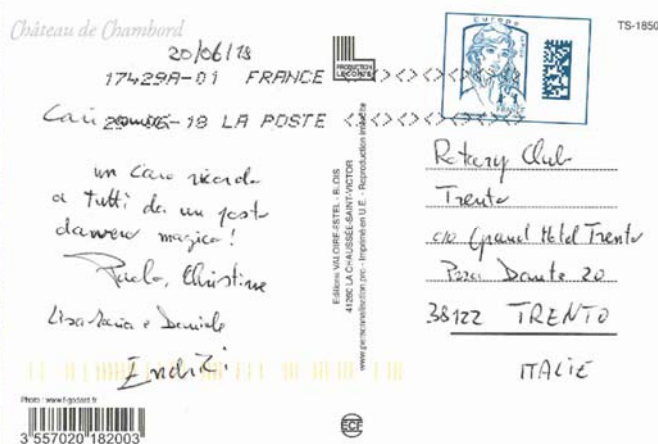 Château de Chambord
TS-1850
20/06/18
17429A-01 FRANCE
Cari
-06-18 LA POSTE
EUROPE
FRANCE
PRODUCTION
LECONTE
un caro ricordo
a tutti da un posto
davvero magico!
Paolo, Christine
Lisa Maria e Daniele
Endrizzi
Editions VALOIRE-ESTEL - BLOIS
41260 LA CHAUSSÉE-SAINT-VICTOR
www.personnalisation.pro - Imprimé en U.E. - Reproduction interdite
Rotary Club
Trento
c/o Grand Hotel Trento
Pzza Dante 20
38122 TRENTO
ITALIE
Photo : www.f-godard.fr
3 557020 182003